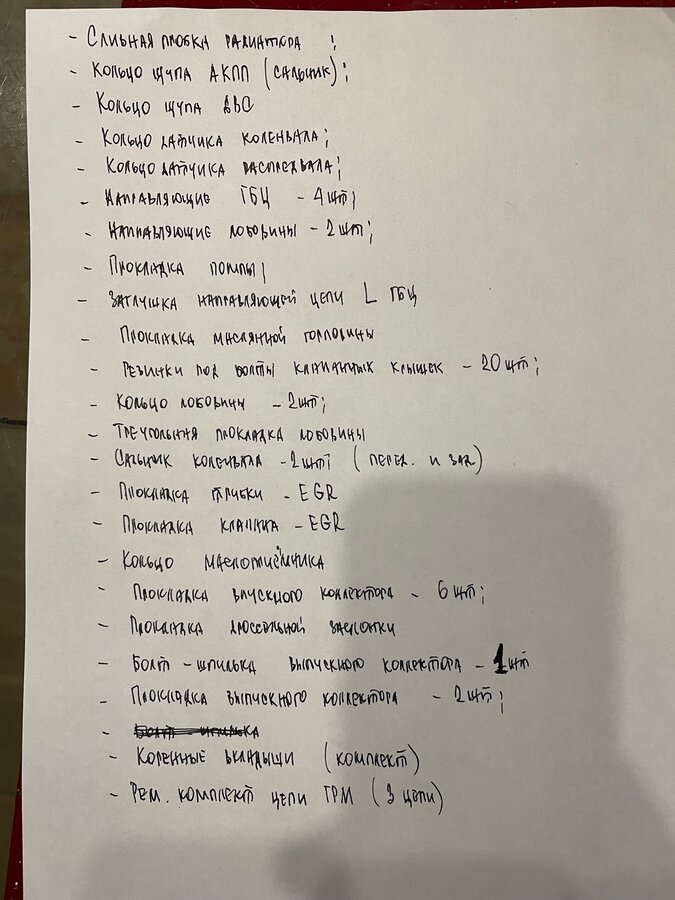 - Сливная пробка радиатора ;
- Кольцо щупа АКПП (сальник);
- Кольцо щупа ДВС
- Кольцо датчика коленвала;
- Кольцо датчика распредвала;
- Направляющие ГБЦ - 4 шт;
- Направляющие лобовины - 2 шт;
- Прокладка помпы;
- Заглушка направляющей цепи L ГБЦ
- Прокладка маслянной горловины
- Резинки под болты клапанных крышек - 20 шт;
- Кольцо лобовины - 2 шт;
- Треугольная прокладка лобовины
- Сальник коленвала - 2 шт (перед. и зад)
- Прокладка трубки - EGR
- Прокладка клапана - EGR
- Кольцо маслоприёмника
- Прокладка впускного коллектора - 6 шт;
- Прокладка дроссельной заслонки
- Болт - шпилька выпускного коллектора - 1 шт
- Прокладка выпускного коллектора - 2 шт;
- Болт шпилька
- Коленные вкладыши (комплект)
- Рем. комплект цепи ГРМ (3 цепи)